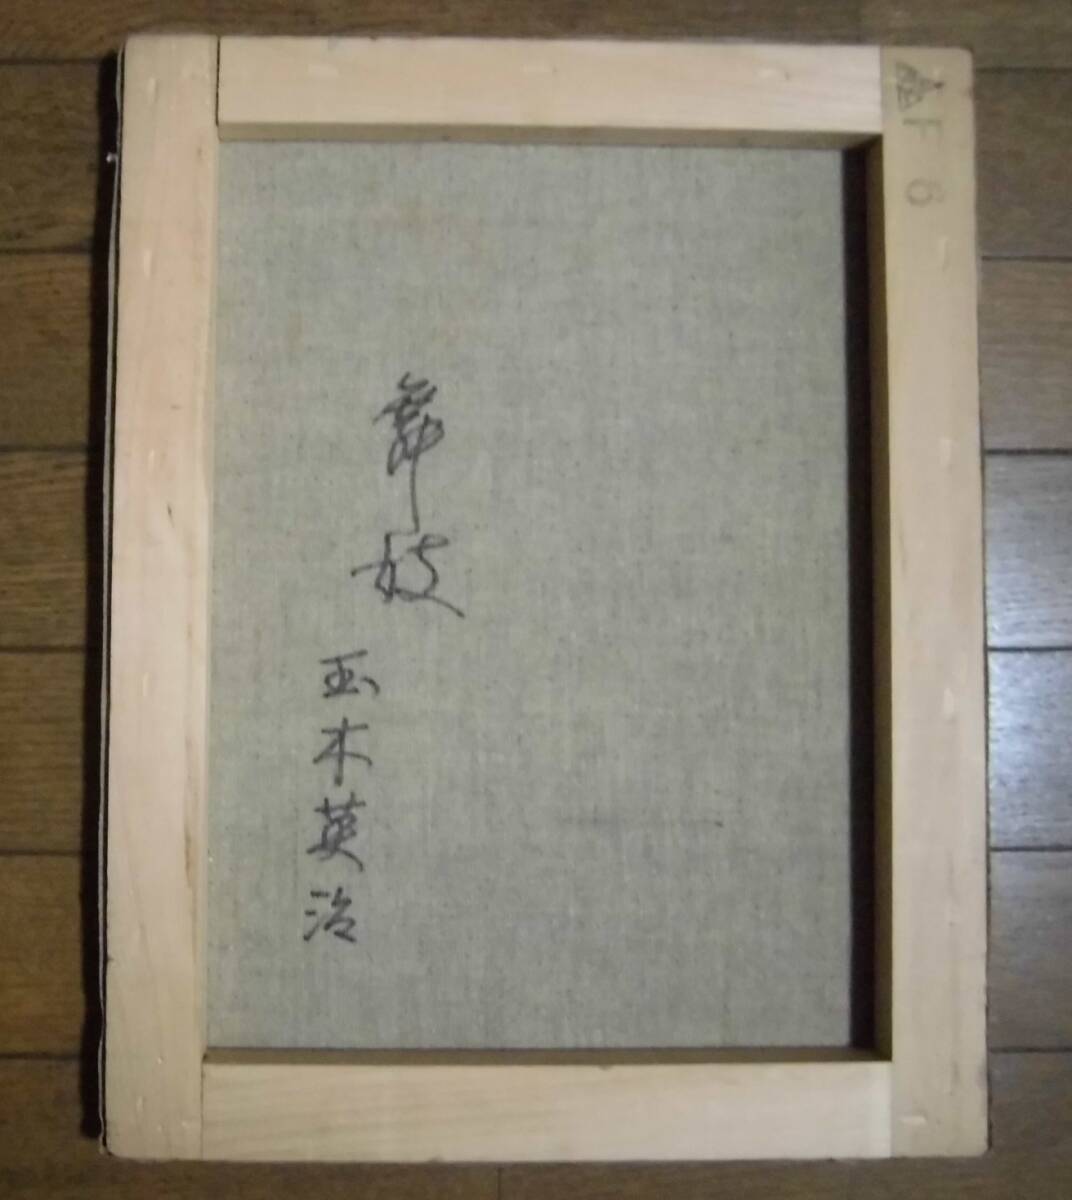 F6
舞妓
玉木英治